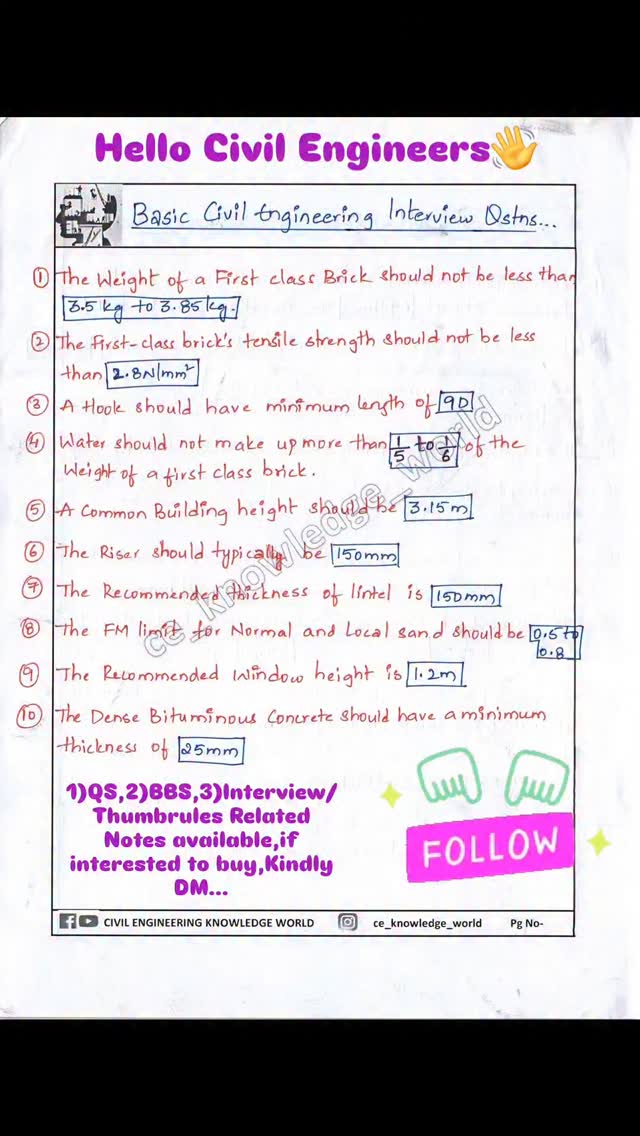 Hello Civil Engineers👋
Basic Civil Engineering Interview Qstns...
① The Weight of a First class Brick should not be less than
3.5 kg to 3.85 kg.
② The First-class brick's tensile strength should not be less
than 2.8N/mm²
③ A Hook should have minimum length of 9D
④ Water should not make up more than 1/5 to 1/6 of the
Weight of a first class brick.
⑤ A Common Building height should be 3.15m
⑥ The Riser should typically be 150mm
⑦ The Recommended thickness of lintel is 150mm
⑧ The FM limit for Normal and Local sand should be 0.5 to
0.8
⑨ The Recommended Window height is 1.2m
⑩ The Dense Bituminous Concrete should have a minimum
thickness of 25mm
ce_knowledge_world
1)QS,2)BBS,3)Interview/
Thumbrules Related
Notes available,if
interested to buy,Kindly
DM...
FOLLOW
CIVIL ENGINEERING KNOWLEDGE WORLD ce_knowledge_world Pg No-